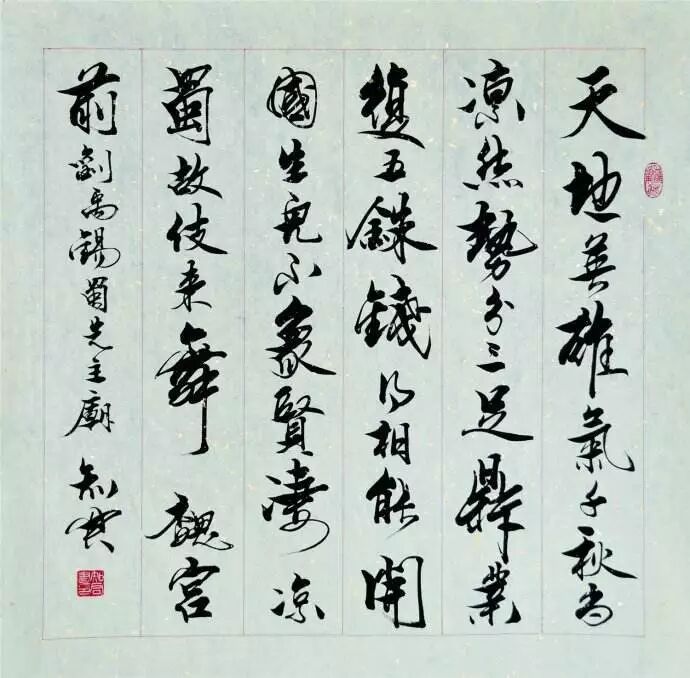 天地英雄氣千秋尚
凛然勢分三足鼎業
復五銖錢得相能開
國生兒不象賢淒涼
蜀故伎来舞魏宮
前劉禹錫蜀先主廟